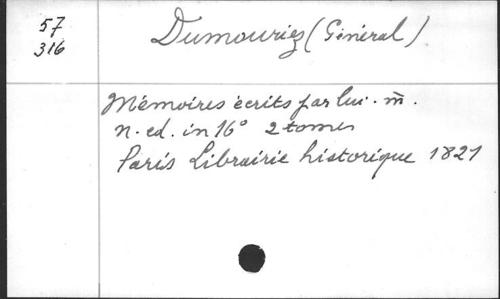 57
316
Dumouriez (Général)
Mémoires écrits par lui. m̄.
n. ed. in 16° 2 tomes
Paris Librairie historique 1821